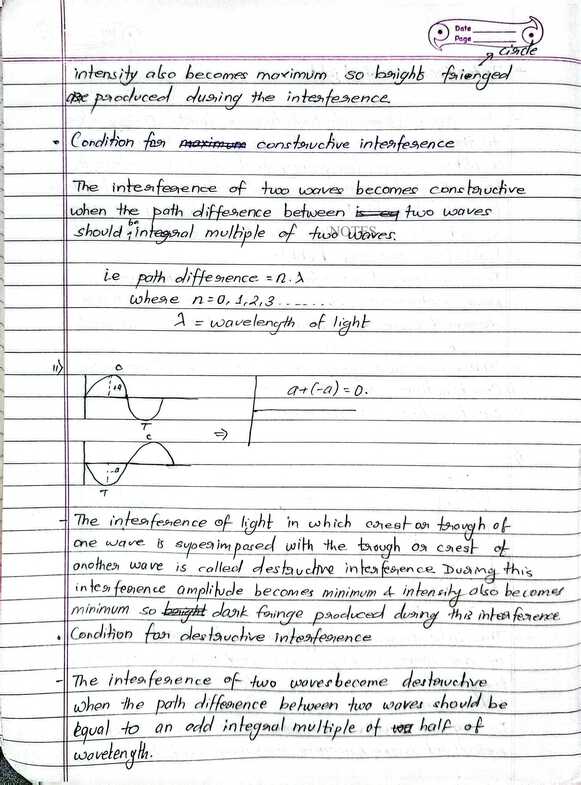 Date
Page
circle
intensity also becomes maximum so bright frienged
are produced during the interference.
• Condition for maximum constructive interference
The interference of two waves becomes constructive
when the path difference between is eq two waves
should be integral multiple of two waves.
NOTES
i.e path difference = n.λ
where n=0,1,2,3.......
λ = wavelength of light
11)
C
+a
T
a+(-a)=0.
⇒
C
-a
T
- The interference of light in which crest or trough of
one wave is superimpased with the trough or crest of
another wave is called destructive interference During this
interference amplitude becomes minimum & intensity also becomes
minimum so bright dark fringe produced during this interference
• Condition for destructive interference
- The interference of two waves become destructive
when the path difference between two waves should be
equal to an odd integral multiple of half of
wavelength.